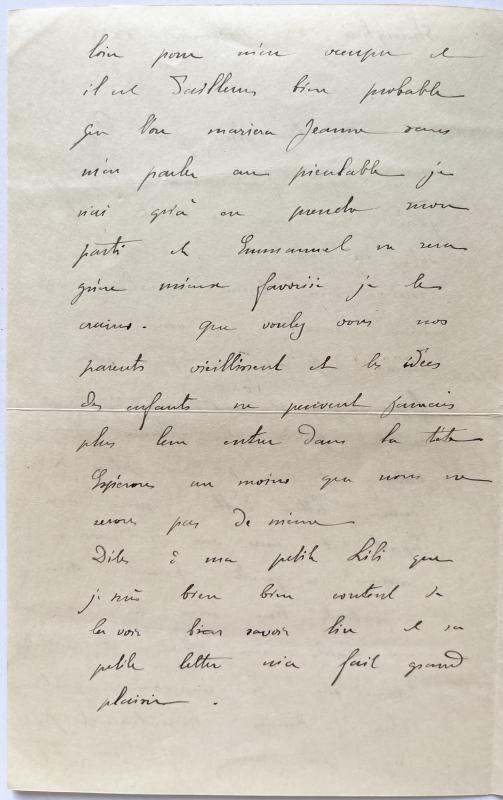 loin pour m'en occuper et
il est d'ailleurs bien probable
que l'on mariera Jeanne sans
m'en parler au préalable je
n'ai qu'à en prendre mon
parti et Emmanuel ne sera
guère mieux favorisé je le
crains. que voulez vous nos
parents vieillissent et les idées
des enfants ne peuvent jamais
plus leur entrer dans la tête
Espérons au moins que nous ne
serons pas de même
Dites à ma petite Lili que
je suis bien bien content de
la voir bien savoir lire et sa
petite lettre m'a fait grand
plaisir.